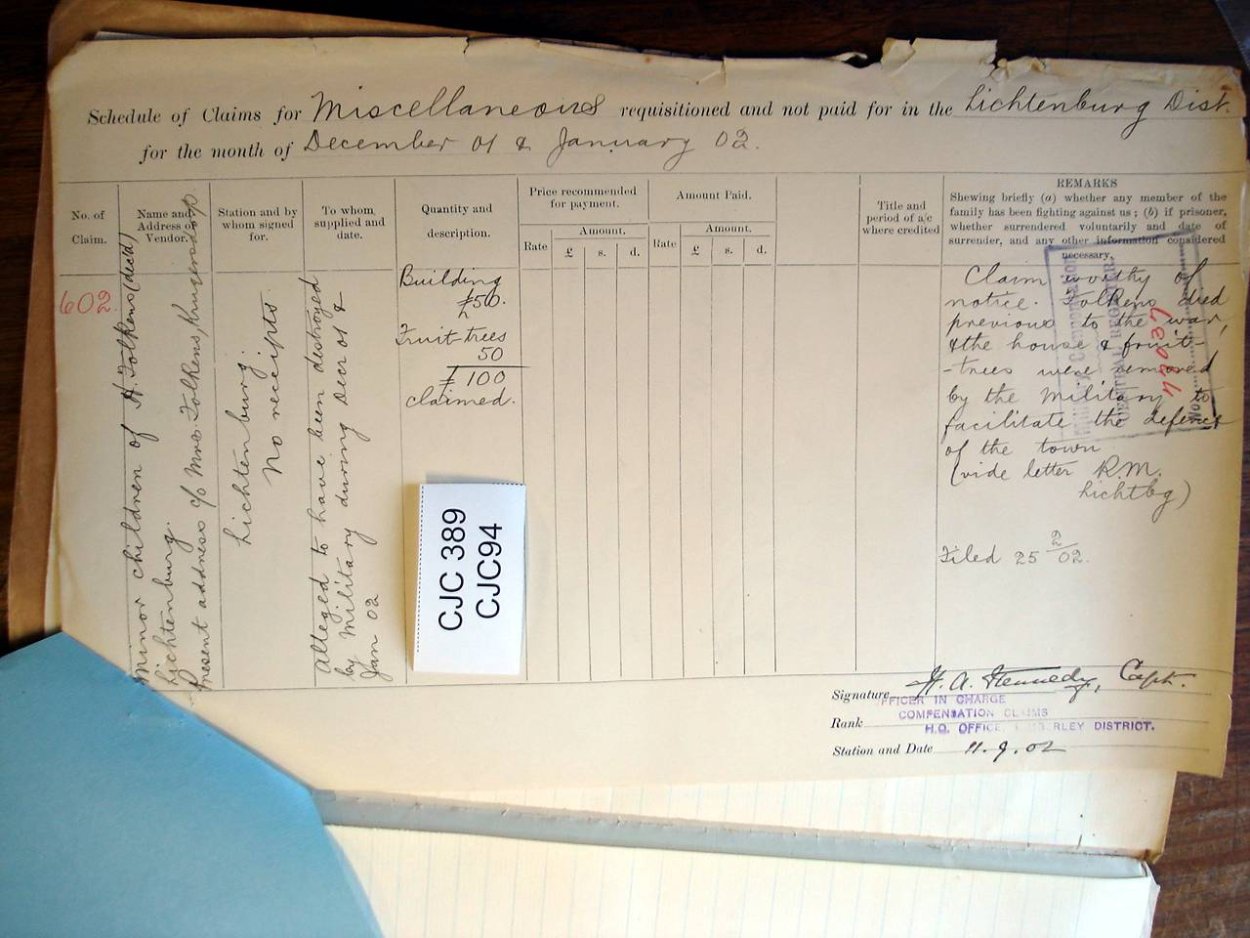 Schedule of Claims for Miscellaneous requisitioned and not paid for in the Lichtenburg Dist.
for the month of December 01 & January 02.
No. of Claim.
Name and Address of Vendor.
Station and by whom signed for.
To whom supplied and date.
Quantity and description.
Price recommended for payment.
Rate
Amount.
£ s. d.
Amount Paid.
Rate
Amount.
£ s. d.
Title and period of a/c where credited
REMARKS
Shewing briefly (a) whether any member of the
family has been fighting against us; (b) if prisoner,
whether surrendered voluntarily and date of
surrender, and any other information considered
necessary.
602
Minor children of H. Folkens (dec'd)
Lichtenburg.
Present address c/o Mrs. Folkens, Krugersdorp
Lichtenburg.
No receipts.
Alleged to have been destroyed
by Military during Decr 01 &
Jan 02
Building
£50.
Fruit-trees
50
£ 100
claimed.
Claim worthy of
notice. Folkens died
previous to the war,
& the house & fruit-
-trees were removed
by the Military to
facilitate the defence
of the town
(vide letter R.M.
Lichtbg)
Filed 25 2/02.
CJC 389
CJC94
Signature H. A. Kennedy, Capt.
OFFICER IN CHARGE
COMPENSATION CLAIMS
Rank
H.Q. OFFICE DISTRICT.
Station and Date 11.9.02